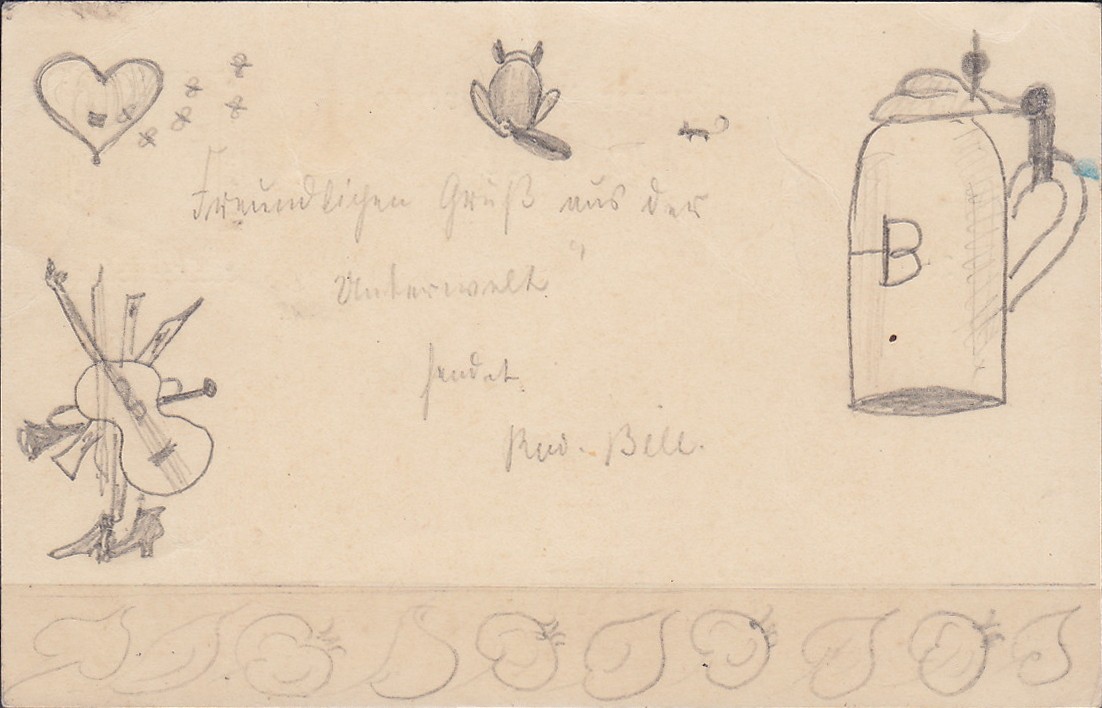 Freundlichen Gruß aus der
Unterwelt"
sendet
Rud. Bell.
B